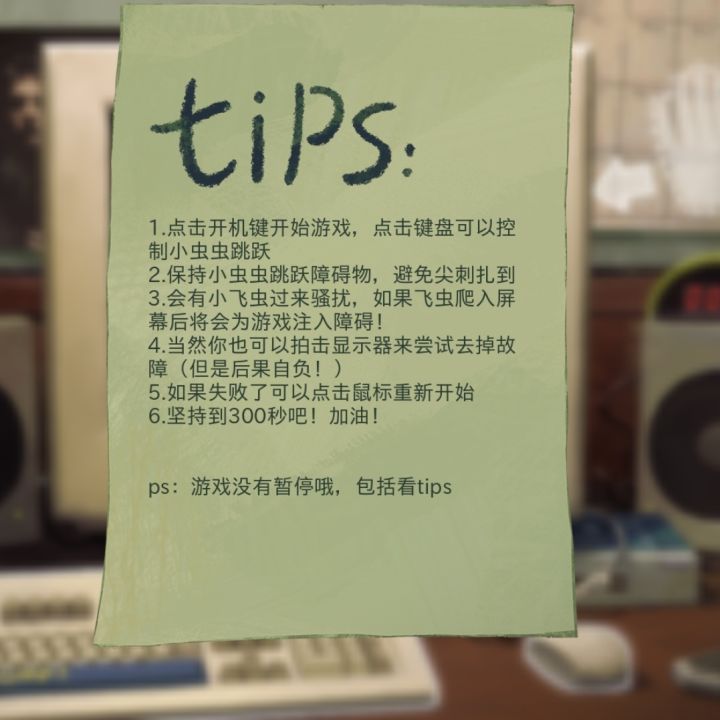 tips:
1.点击开机键开始游戏，点击键盘可以控
制小虫虫跳跃
2.保持小虫虫跳跃障碍物，避免尖刺扎到
3.会有小飞虫过来骚扰，如果飞虫爬入屏
幕后将会为游戏注入障碍！
4.当然你也可以拍击显示器来尝试去掉故
障（但是后果自负！）
5.如果失败了可以点击鼠标重新开始
6.坚持到300秒吧！加油！
ps：游戏没有暂停哦，包括看tips